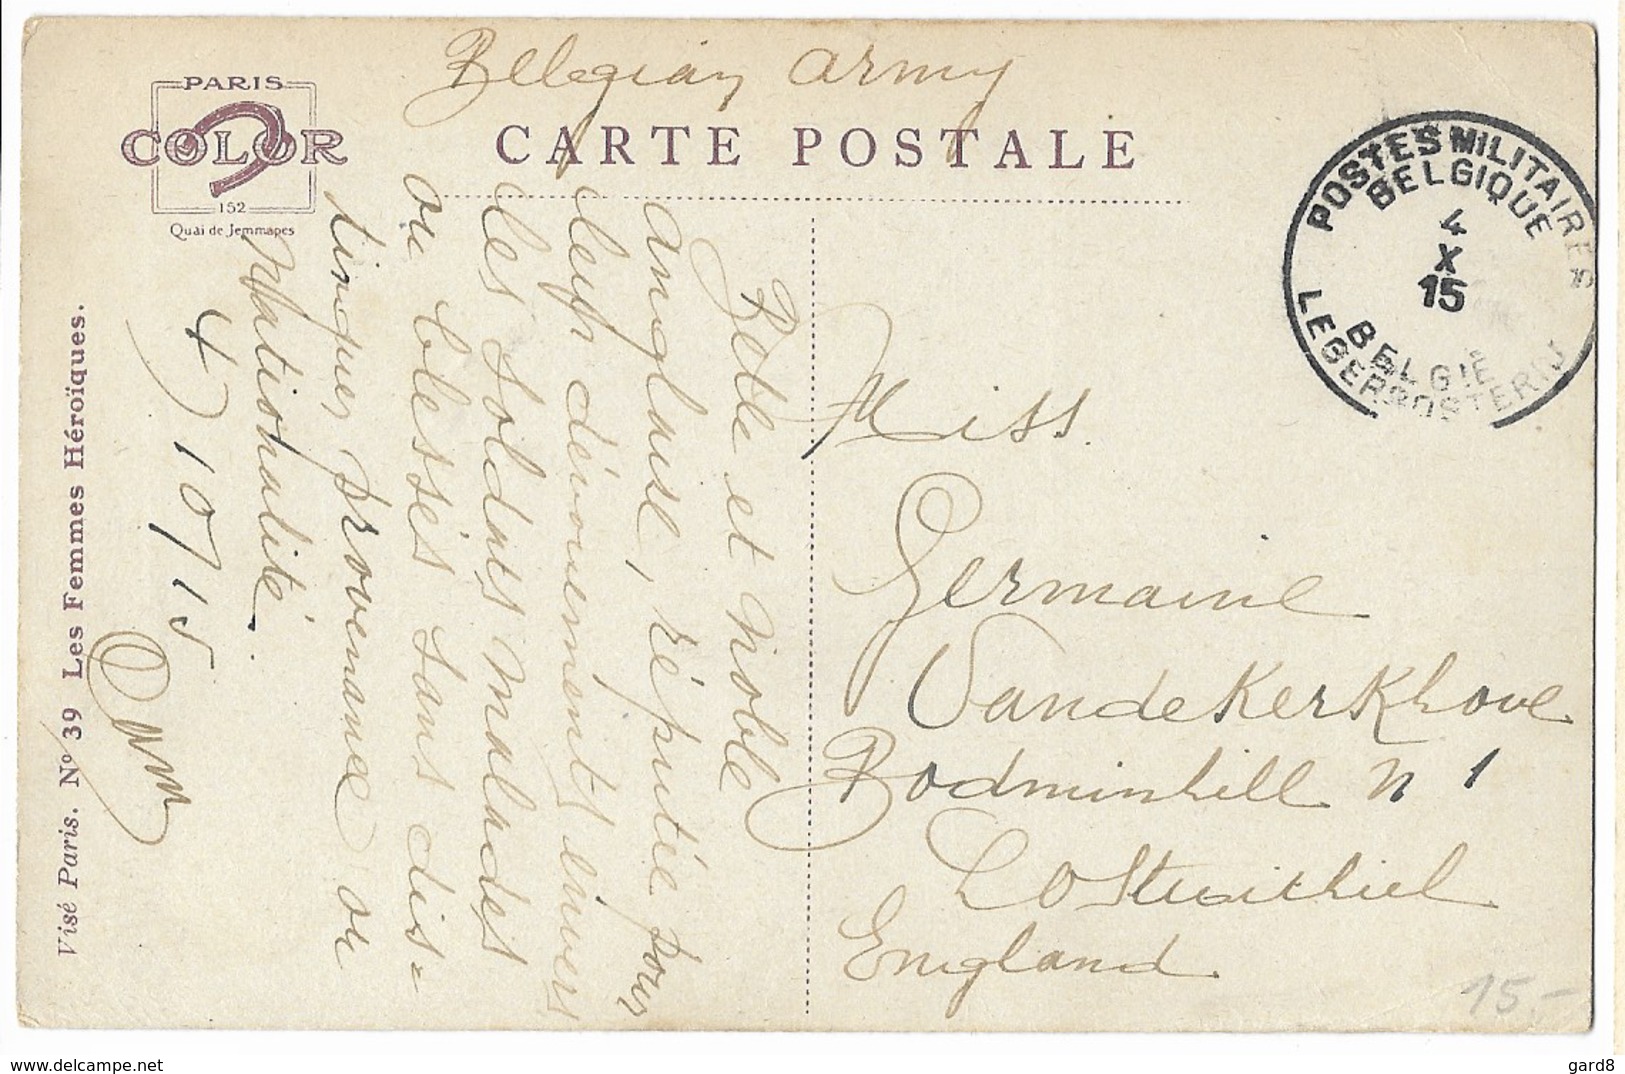 Bellegian army
PARIS
COLOR
152
Quai de Jemmapes
CARTE POSTALE
POSTES MILITAIRES
BELGIQUE
4
X
15
BELGIË
LEGERPOSTERIJ
Belle et Noble
anglaise, réputée pour
leup dévouement, envers
les Soldats malades
ou blessés sans dis=
tinguer provenance ou
Nationalité.
4/10/15
Miss.
Germaine
VandeKerKhove
Bodminhill n 1
LOStwithiel
England
Visé Paris. Nº 39 Les Femmes Héroïques.
15.-
gard8